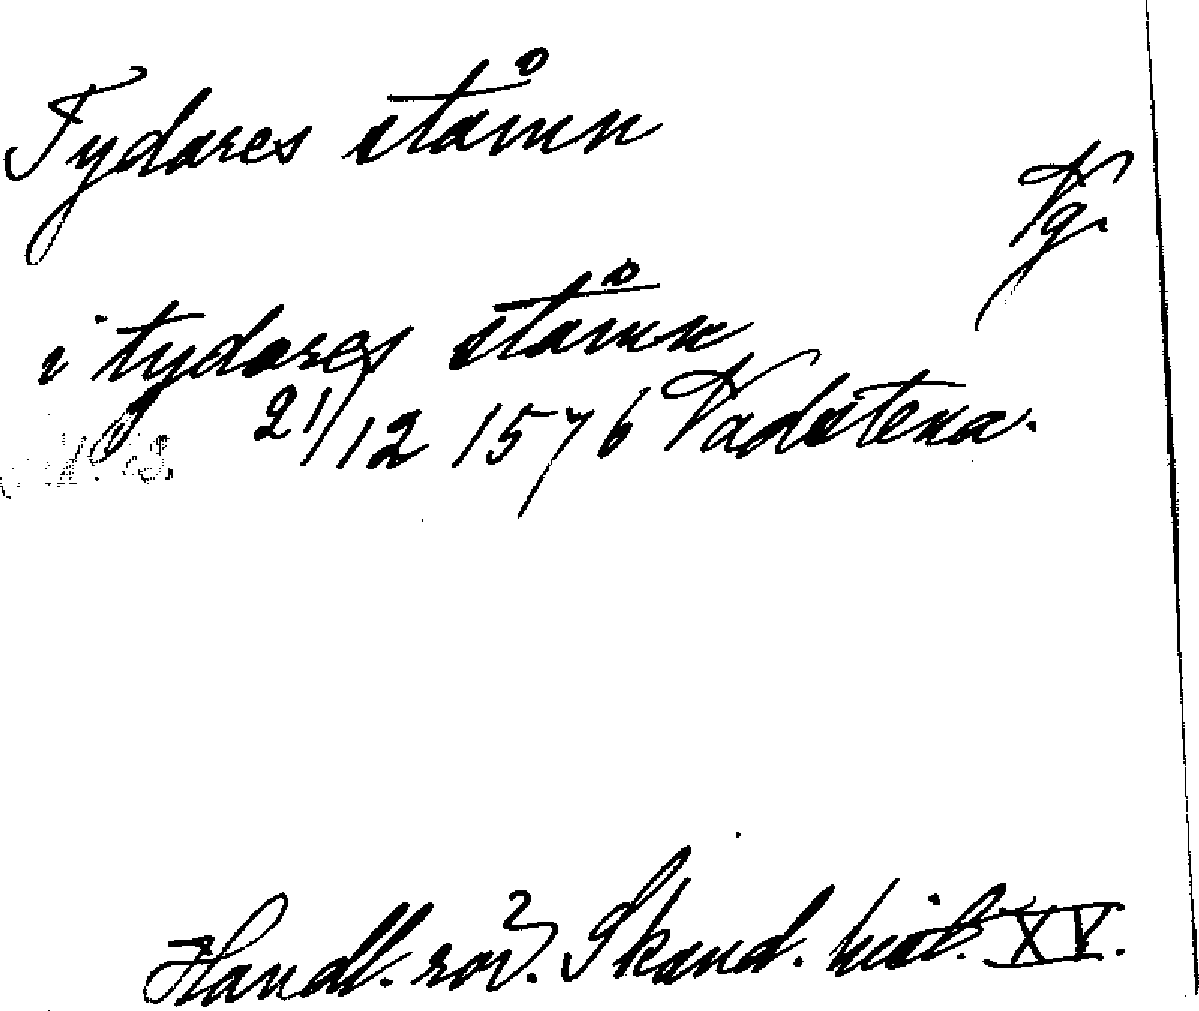 Tydares ståmn
Vg.
i tydares ståmn
21/12 1576 Vadstena.
Handl. rör. Skand. hist. XV.